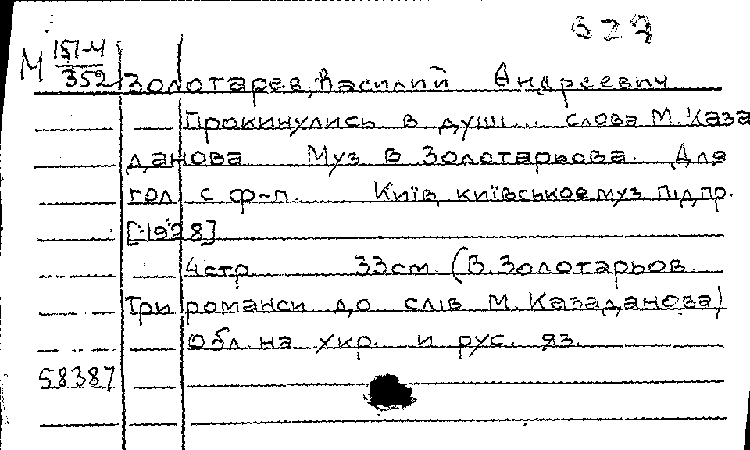 627
М 151-4
352
Золотарев, Василий Андреевич
Прокинулись в душі... слова М. Каза
данова Муз В Золотарьова. Для
гол с ф-п. Київ, київське муз. підпр.
[1928]
4 стр 33 см. (В. Золотарьов
Три романси до слів М. Казаданова)
Обл. на укр. и рус. яз.
58387